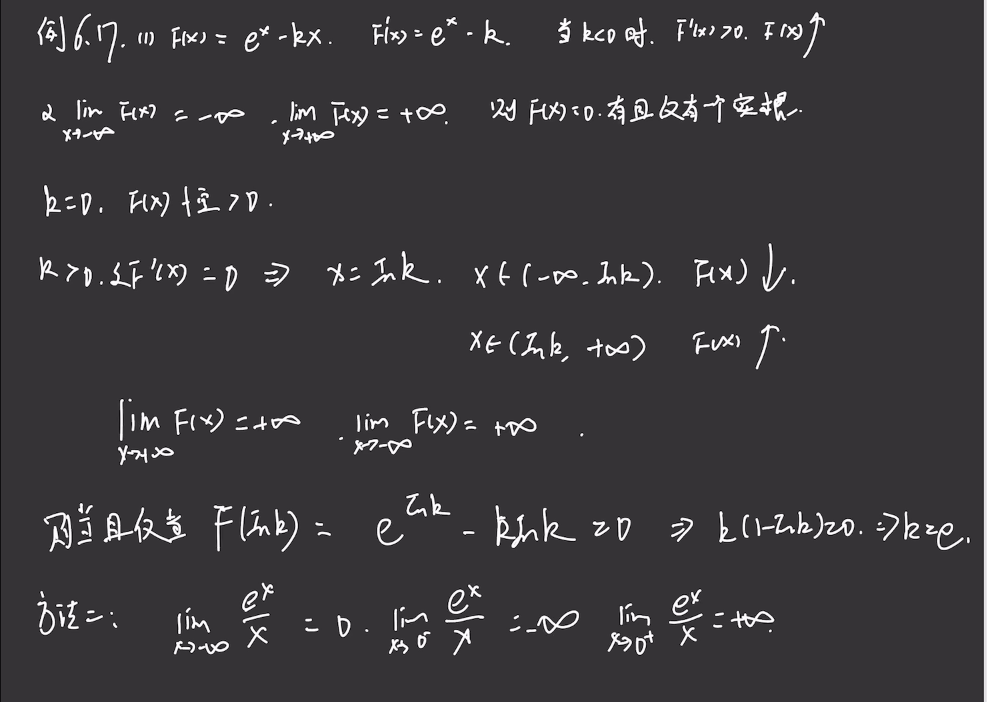 例6.17. (1) F(x) = e^x - kx. F'(x) = e^x - k. 当 k<0 时. F'(x)>0. F(x)↑
又 lim_{x→-∞} F(x) = -∞ . lim_{x→+∞} F(x) = +∞. 则 F(x)=0.有且仅有一个实根.
k=0. F(x) 恒 >0.
k>0.令F'(x) = 0 ⇒ x = lnk. x∈(-∞. lnk). F(x)↓.
x∈(lnk, +∞) F(x)↑.
lim_{x→+∞} F(x) = +∞ . lim_{x→-∞} F(x) = +∞ .
则当且仅当 F(lnk) = e^{lnk} - klnk = 0 ⇒ k(1-lnk)=0. ⇒k=e.
方法二: lim_{x→-∞} e^x/x = 0. lim_{x→0^-} e^x/x = -∞ lim_{x→0^+} e^x/x = +∞.